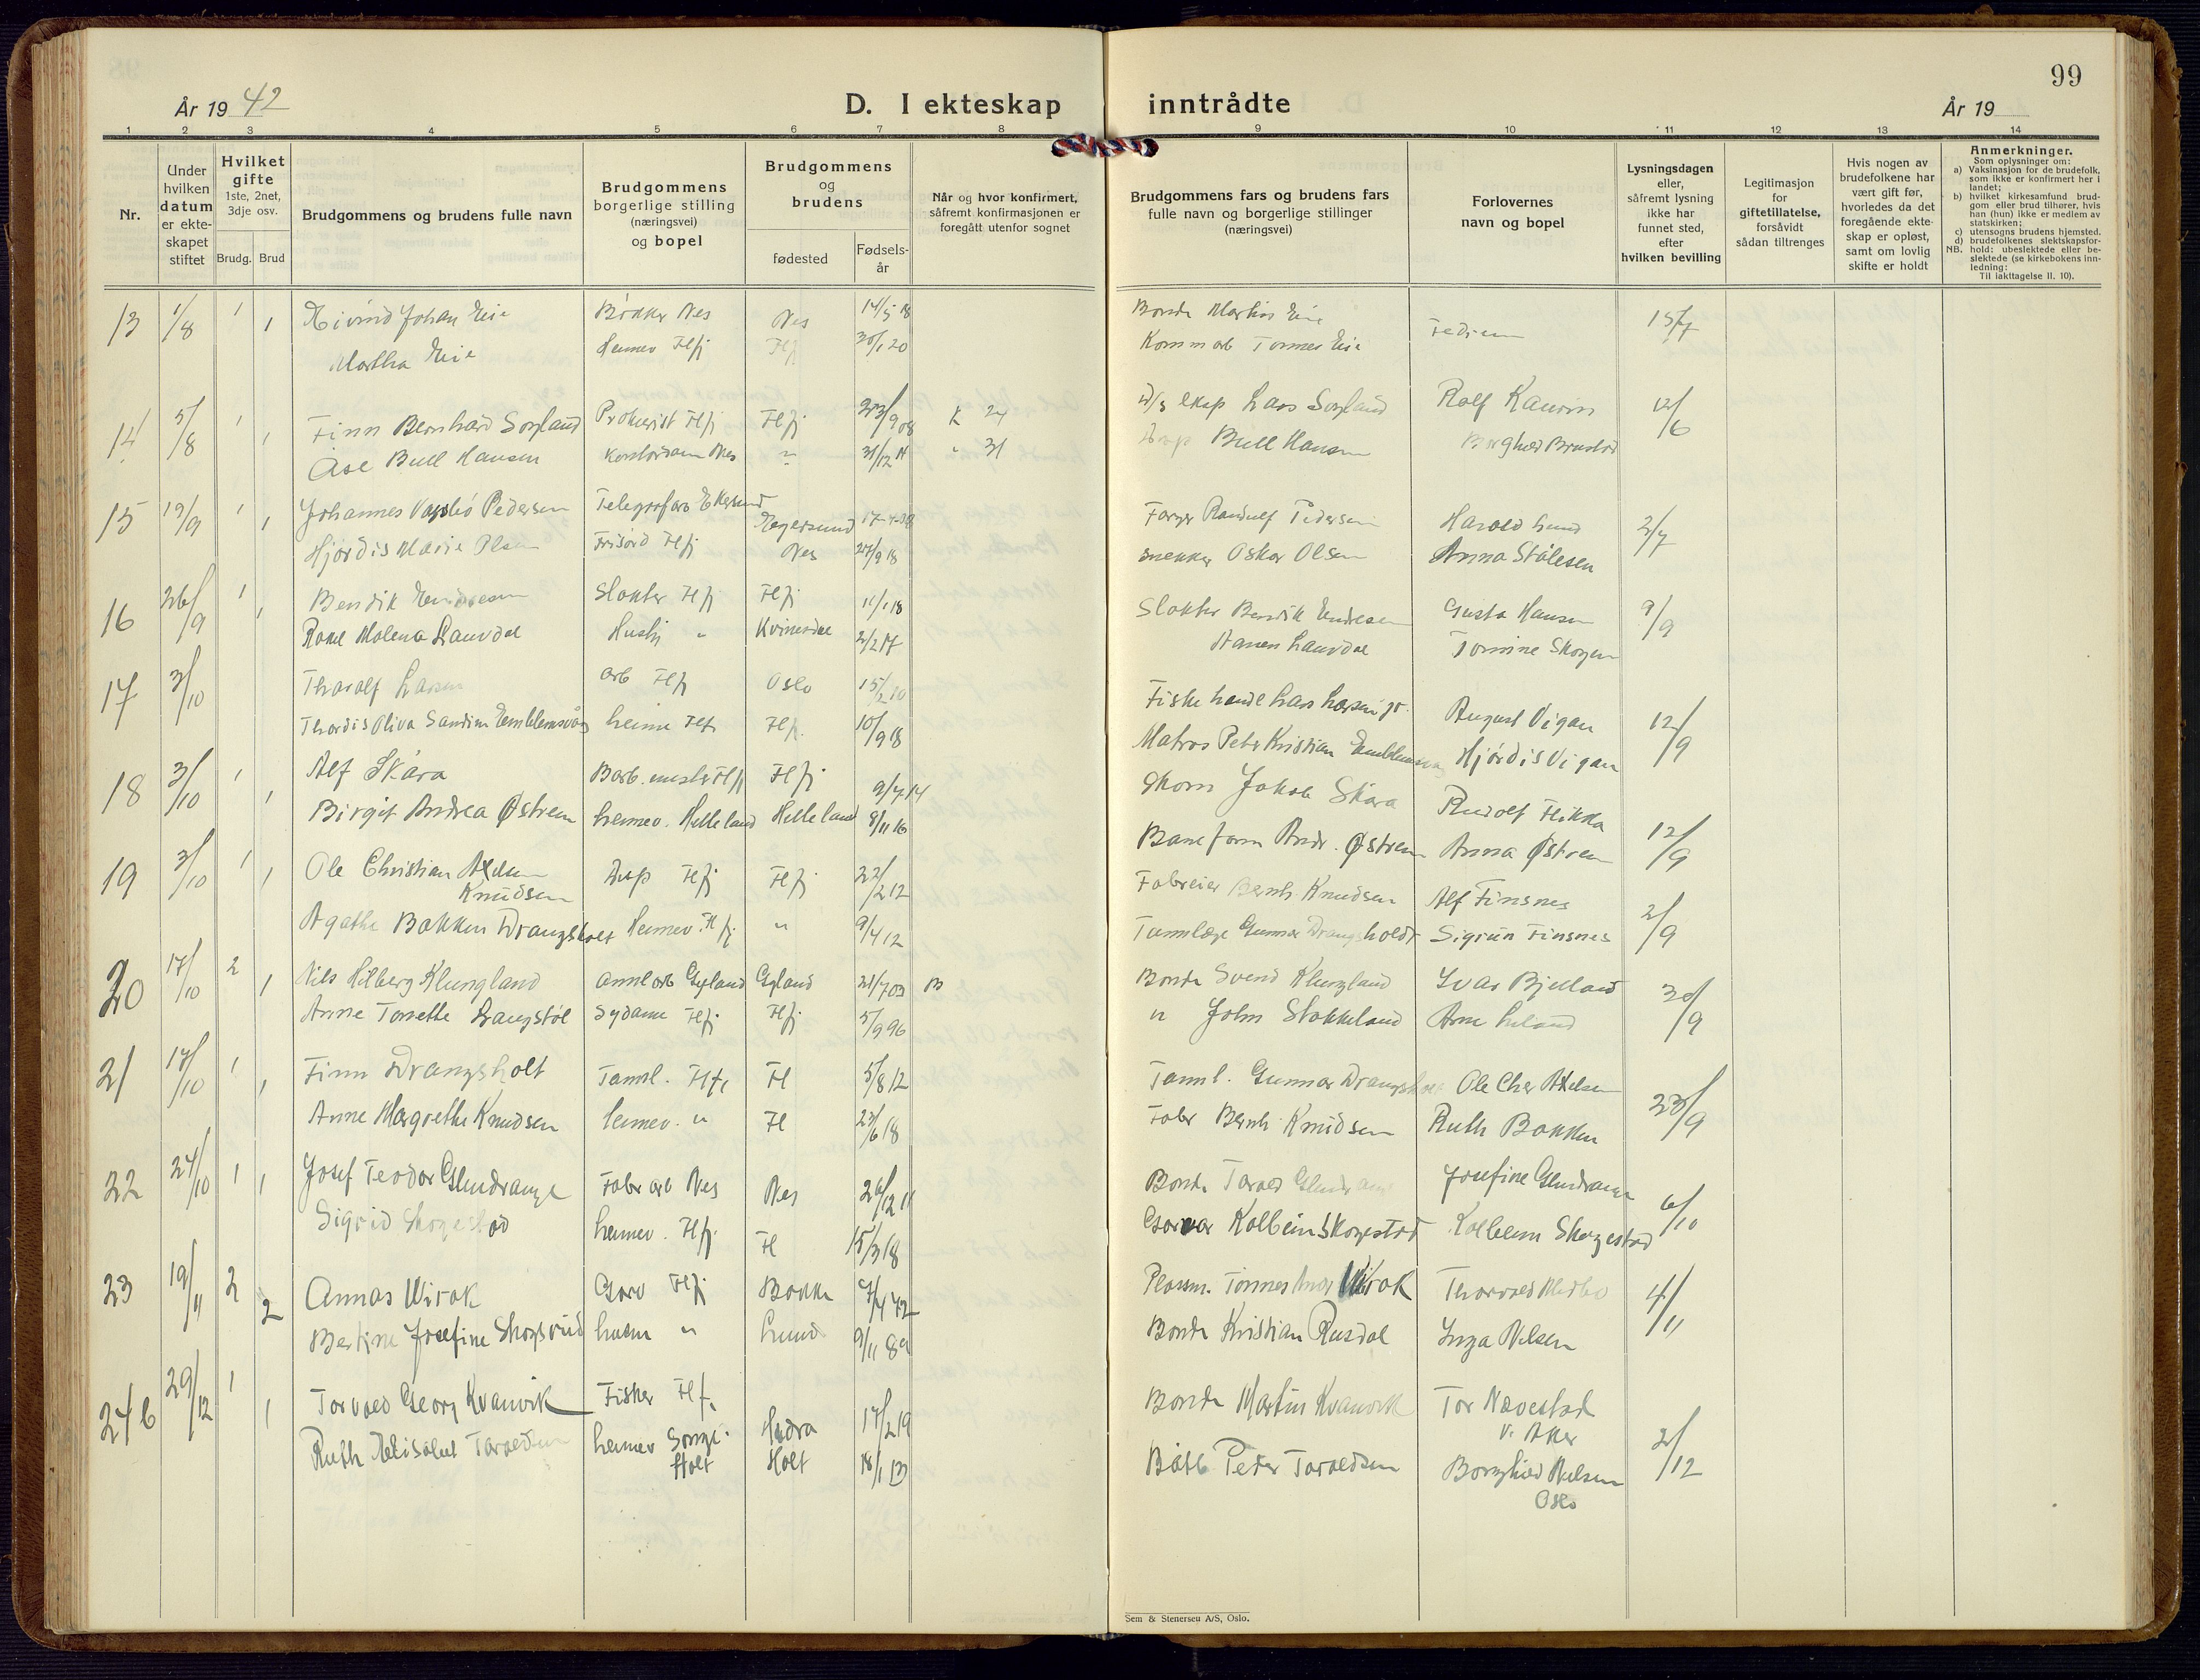 99
År 19 42
D. I ekteskap inntrådte
År 19
1 2 3 4 5 6 7 8 9 10 11 12 13 14
Nr.
Under hvilken datum er ekte-skapet stiftet
Hvilket gifte 1ste, 2net, 3dje osv.
Brudg. Brud
Brudgommens og brudens fulle navn
Brudgommens borgerlige stilling (næringsvei) og bopel
Brudgommens og brudens
fødested
Fødsels-år
Når og hvor konfirmert, såfremt konfirmasjonen er foregått utenfor sognet
Brudgommens fars og brudens fars fulle navn og borgerlige stillinger (næringsvei)
Forlovernes navn og bopel
Lysningsdagen eller, såfremt lysning ikke har funnet sted, efter hvilken bevilling
Legitimasjon for giftetillatelse, forsåvidt sådan tiltrenges
Hvis nogen av brudefolkene har vært gift før, hvorledes da det foregående ekte-skap er opløst, samt om lovlig skifte er holdt
Anmerkninger.
Som oplysninger om:
a) Vaksinasjon for de brudefolk, som ikke er konfirmert her i landet;
b) hvilket kirkesamfund brud-gom eller brud tilhører, hvis han (hun) ikke er medlem av statskirken;
c) utensogns brudens hjemsted.
d) brudefolkenes slektskapsfor-hold: ubeslektede eller be-slektede (se kirkebokens inn-ledning:
NB. Til iakttagelse II. 10).
13 1/8 1 Eivind Johan Eie Bødker Nes Nes 14/5 18 Bonde Martin Eie 15/7
1 Martha Eie Heimev Flfj Flfj 30/1 20 Komm arb Tønnes Eie
14 5/8 1 Finn Bernhard Søyland Prokurist Flfj Flfj 23/9 08 K 24 D/s eksp Lars Søyland Rolf Kaurin 12/6
1 Åse Bull Hansen Kontordame Nes " 31/12 " 31 Bull Hansen Borghild Brustad
15 19/9 1 Johannes Pedersen Telegrafarb Ekersund Egersund Farger Randulf Pedersen Harald Lund 2/7
1 Hjørdis Marie Olsen Frisørd Flfj Nes 27/9 18 snekker Oskar Olsen Anna Stålesen
16 26/9 1 Bendik Endresen Slakter Flfj Flfj 11/1 18 Slakter Bendik Endresen Gusta Hansen 9/9
1 Malena Laurdal Hushj " Kvinesdal 2/2 17 Aanen Laurdal Tomine Skogen
17 3/10 Thoralf Larsen arb Flfj Oslo 15/2 10 Fiske handl Lars Larsen jr. August Vigan 12/9
Thordis Oliva Sandine Emblemsvåg heime Flfj Flfj. 10/9 18 Matros Peter Kristian Emblemsvåg Hjørdis Vigan
18 3/10 1 Alf Skåra Barb. mester Flfj Flfj 9/7 14 Skom Jakob Skåra Rudolf Flikka 12/9
1 Birgit Andrea Østrem heimev. Helleland Helleland 8/11 16 Bane form Andr. Østrem Anna Østrem
19 3/10 1 Ole Christian Axelsen Knudsen Disp Flfj Flfj 22/2 12 Fabreier Bernh. Knudsen Alf Finsnes 2/9
1 Agathe Bakken Drangsholt Heimev. Flfj " 9/4 12 Tannlæge Gunnar Drangsholdt Sigrun Finsnes
20 17/10 2 Nils Hilberg Klungland annl arb Gyland Gyland 21/7 03 B Bonde Svend Klungland Ivar Bjelland 30/9
1 Anne Tonette Langstøl Sydame Flfj Flfj 5/9 96 " John Stakkeland Arne Leland
21 17/10 1 Finn Drangsholt Tannl. Flfj Fl 5/8 12 Tannl. Gunnar Drangsholt Ole Chr Axelsen 23/9
1 Anne Margrethe Knudsen heimev. " Fl 23/6 18 Fabr Bernh Knudsen Ruth Bakken
22 24/10 1 Josef Teodor Glendrange Fabr arb Nes Nes 26/12 11 Bonde Tarald Glendrange Josefine Glendrange 6/10
1 Sigrid Skogestad heimev. Flfj Fl 15/3 18 Garver Kolbein Skogestad Kolbein Skogestad
23 19/11 2 Annas Wirak Garv Flfj Bakke Plassm. Tønnes Wirak Thorvald Medbø 4/11
2 Bertine Josefine Skogsrud husm " Lund 9/11 89 Bonde Kristian Rusdal Inga Nilsen
24b 29/12 1 Torvald Georg Kvanvik Fisker Flf. Hidra 17/2 19 Bonde Martin Kvanvik Tor Nævestad V. Aker 2/12
1 Ruth Elisabet Taraldsen heimev Songe Holt Holt 18/1 13 Båtb Peder Taraldsen Borghild Nilsen Oslo
Sem & Stenersen A/S, Oslo.